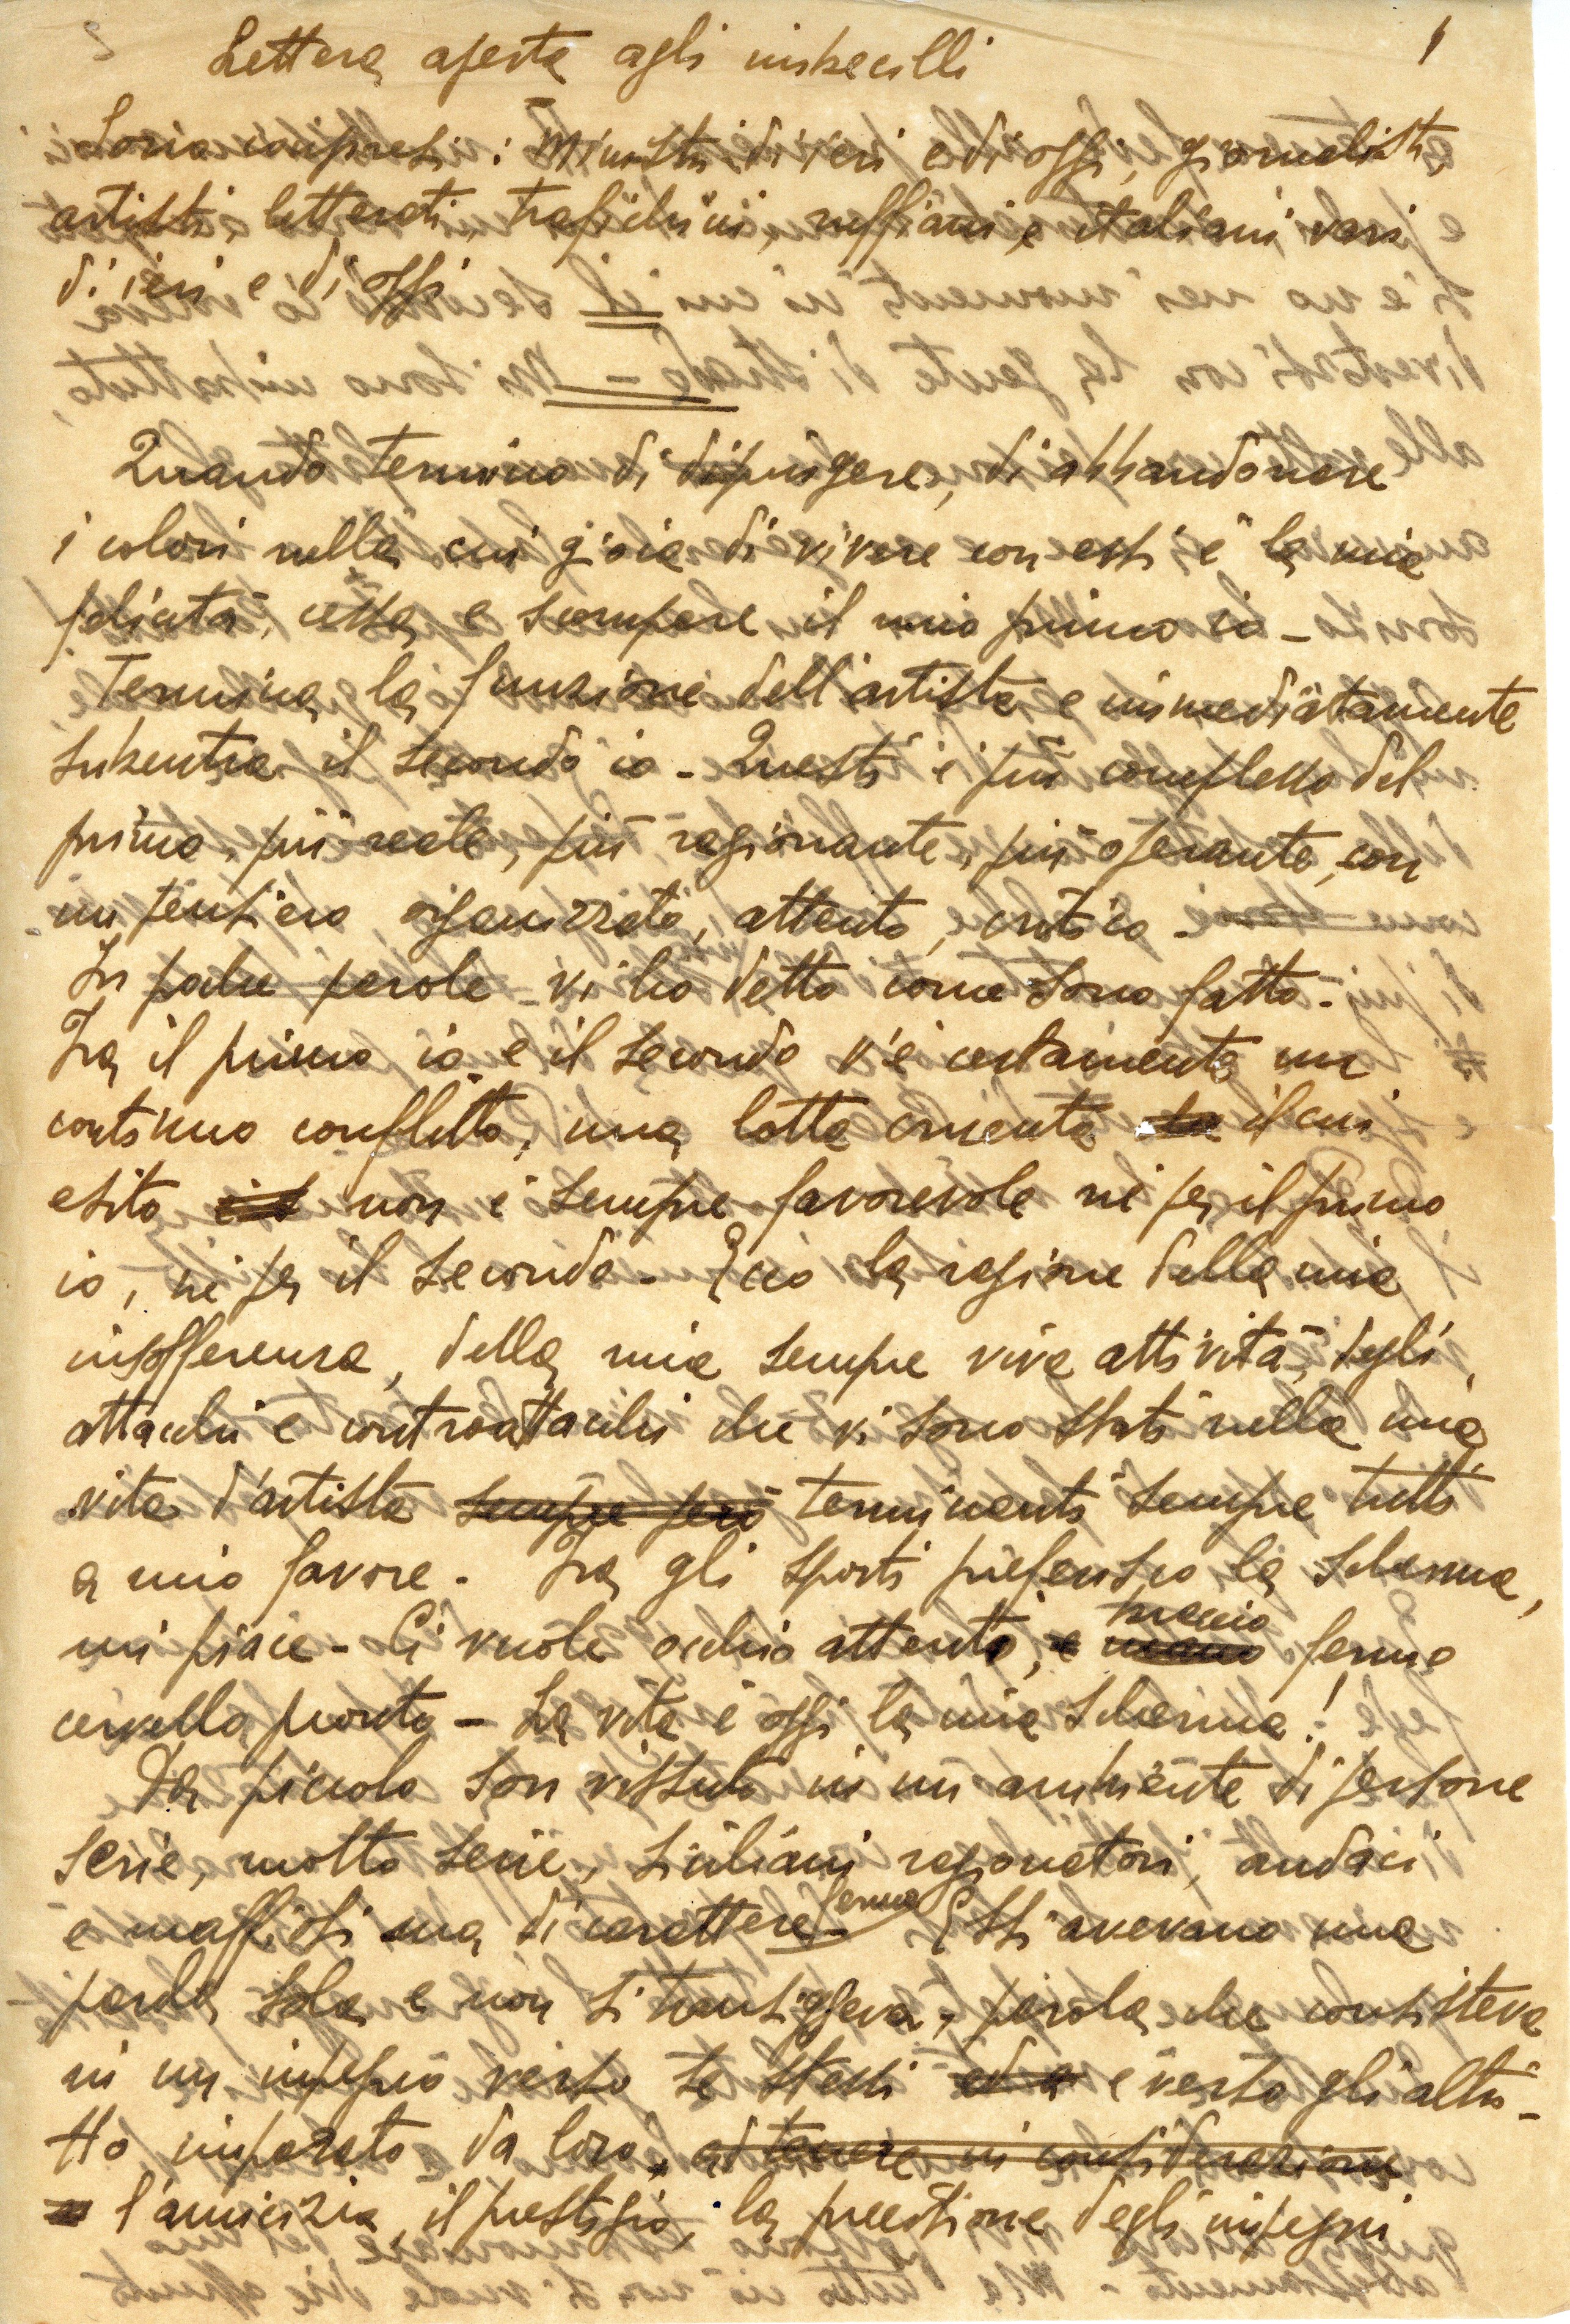 1
Lettera aperta agli imbecilli
Sono compresi: Ministri di ieri e di oggi, giornalisti,
artisti, letterati, trafichini, ruffiani e italiani vari
di ieri e di oggi
Quando termino di dipingere, di abbandonare
i colori nella cui gioia di vivere con essi è la mia
felicità, cessa e scompare il mio primo io -
Termina la funzione dell'artista e immediatamente
subentra il secondo io - Questi è più complesso del
primo, più reale, più ragionante, più operante, con
un pensiero organizzato, attento, critico -
In poche parole vi ho detto come sono fatto -
Tra il primo io e il secondo v'è certamente un
continuo conflitto, una lotta cruenta il cui
esito non è sempre favorevole nè per il primo
io, nè per il secondo - Ecco la ragione della mia
insofferenza, della mia sempre viva attività, degli
attacchi e controattacchi che vi sono stati nella mia
vita d'artista sempre però terminanti sempre tutti
a mio favore - Tra gli sports preferisco la scherma,
mi piace - Ci vuole occhio attento, e mano braccio fermo
cervello pronto - La vita è oggi la mia scherma!
Da piccolo son vissuto in un ambiente di persone
serie, molto serie, siciliani ragionatori, audaci
e maffiosi ma di carattere fermo - Essi avevano una
parola sola e non si transiggeva, parola che consisteva
in un impegno verso se stessi ed a e verso gli altri -
Ho imparato da loro, ad tenere in considerazione
l'amicizia, il prestigio, la precisione degli impegni